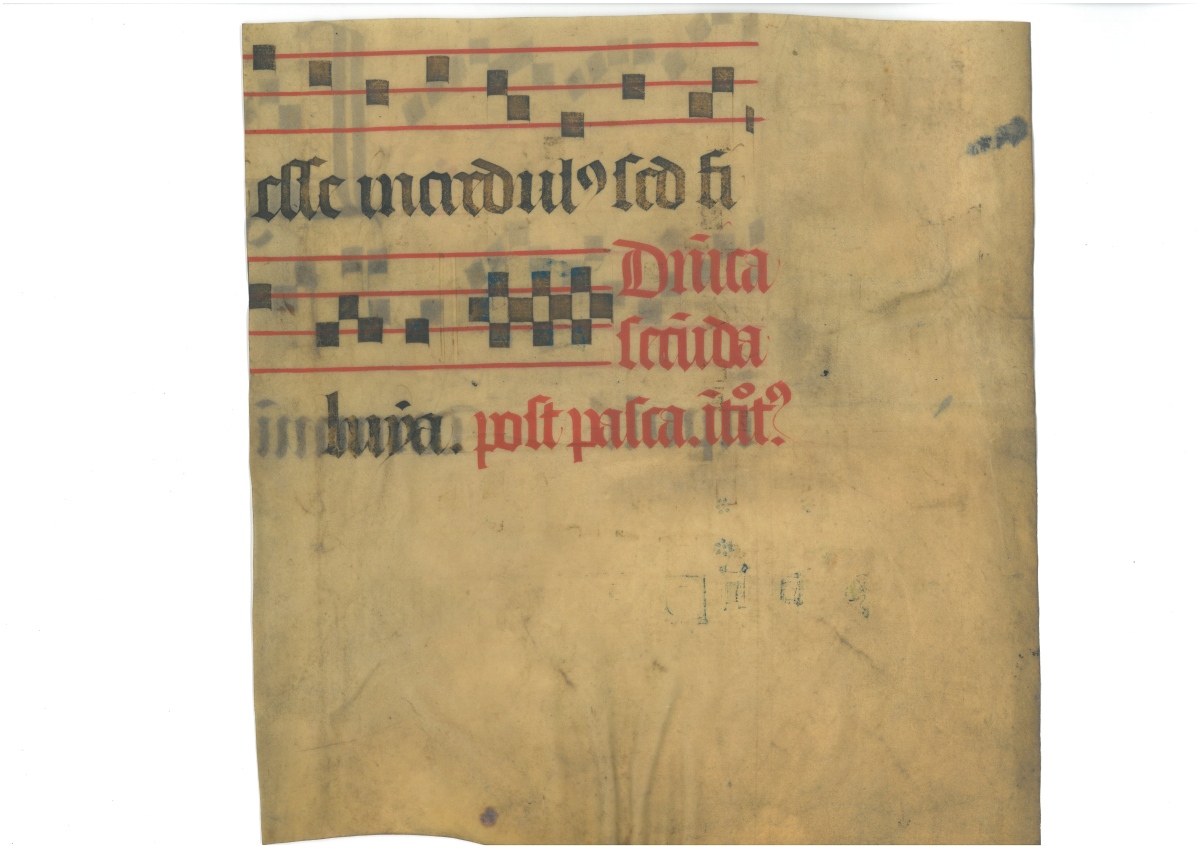 esse incredulꝯ sed fi
Dn̄ica
secūda
luıya. post pasca. ītͦıtꝰ